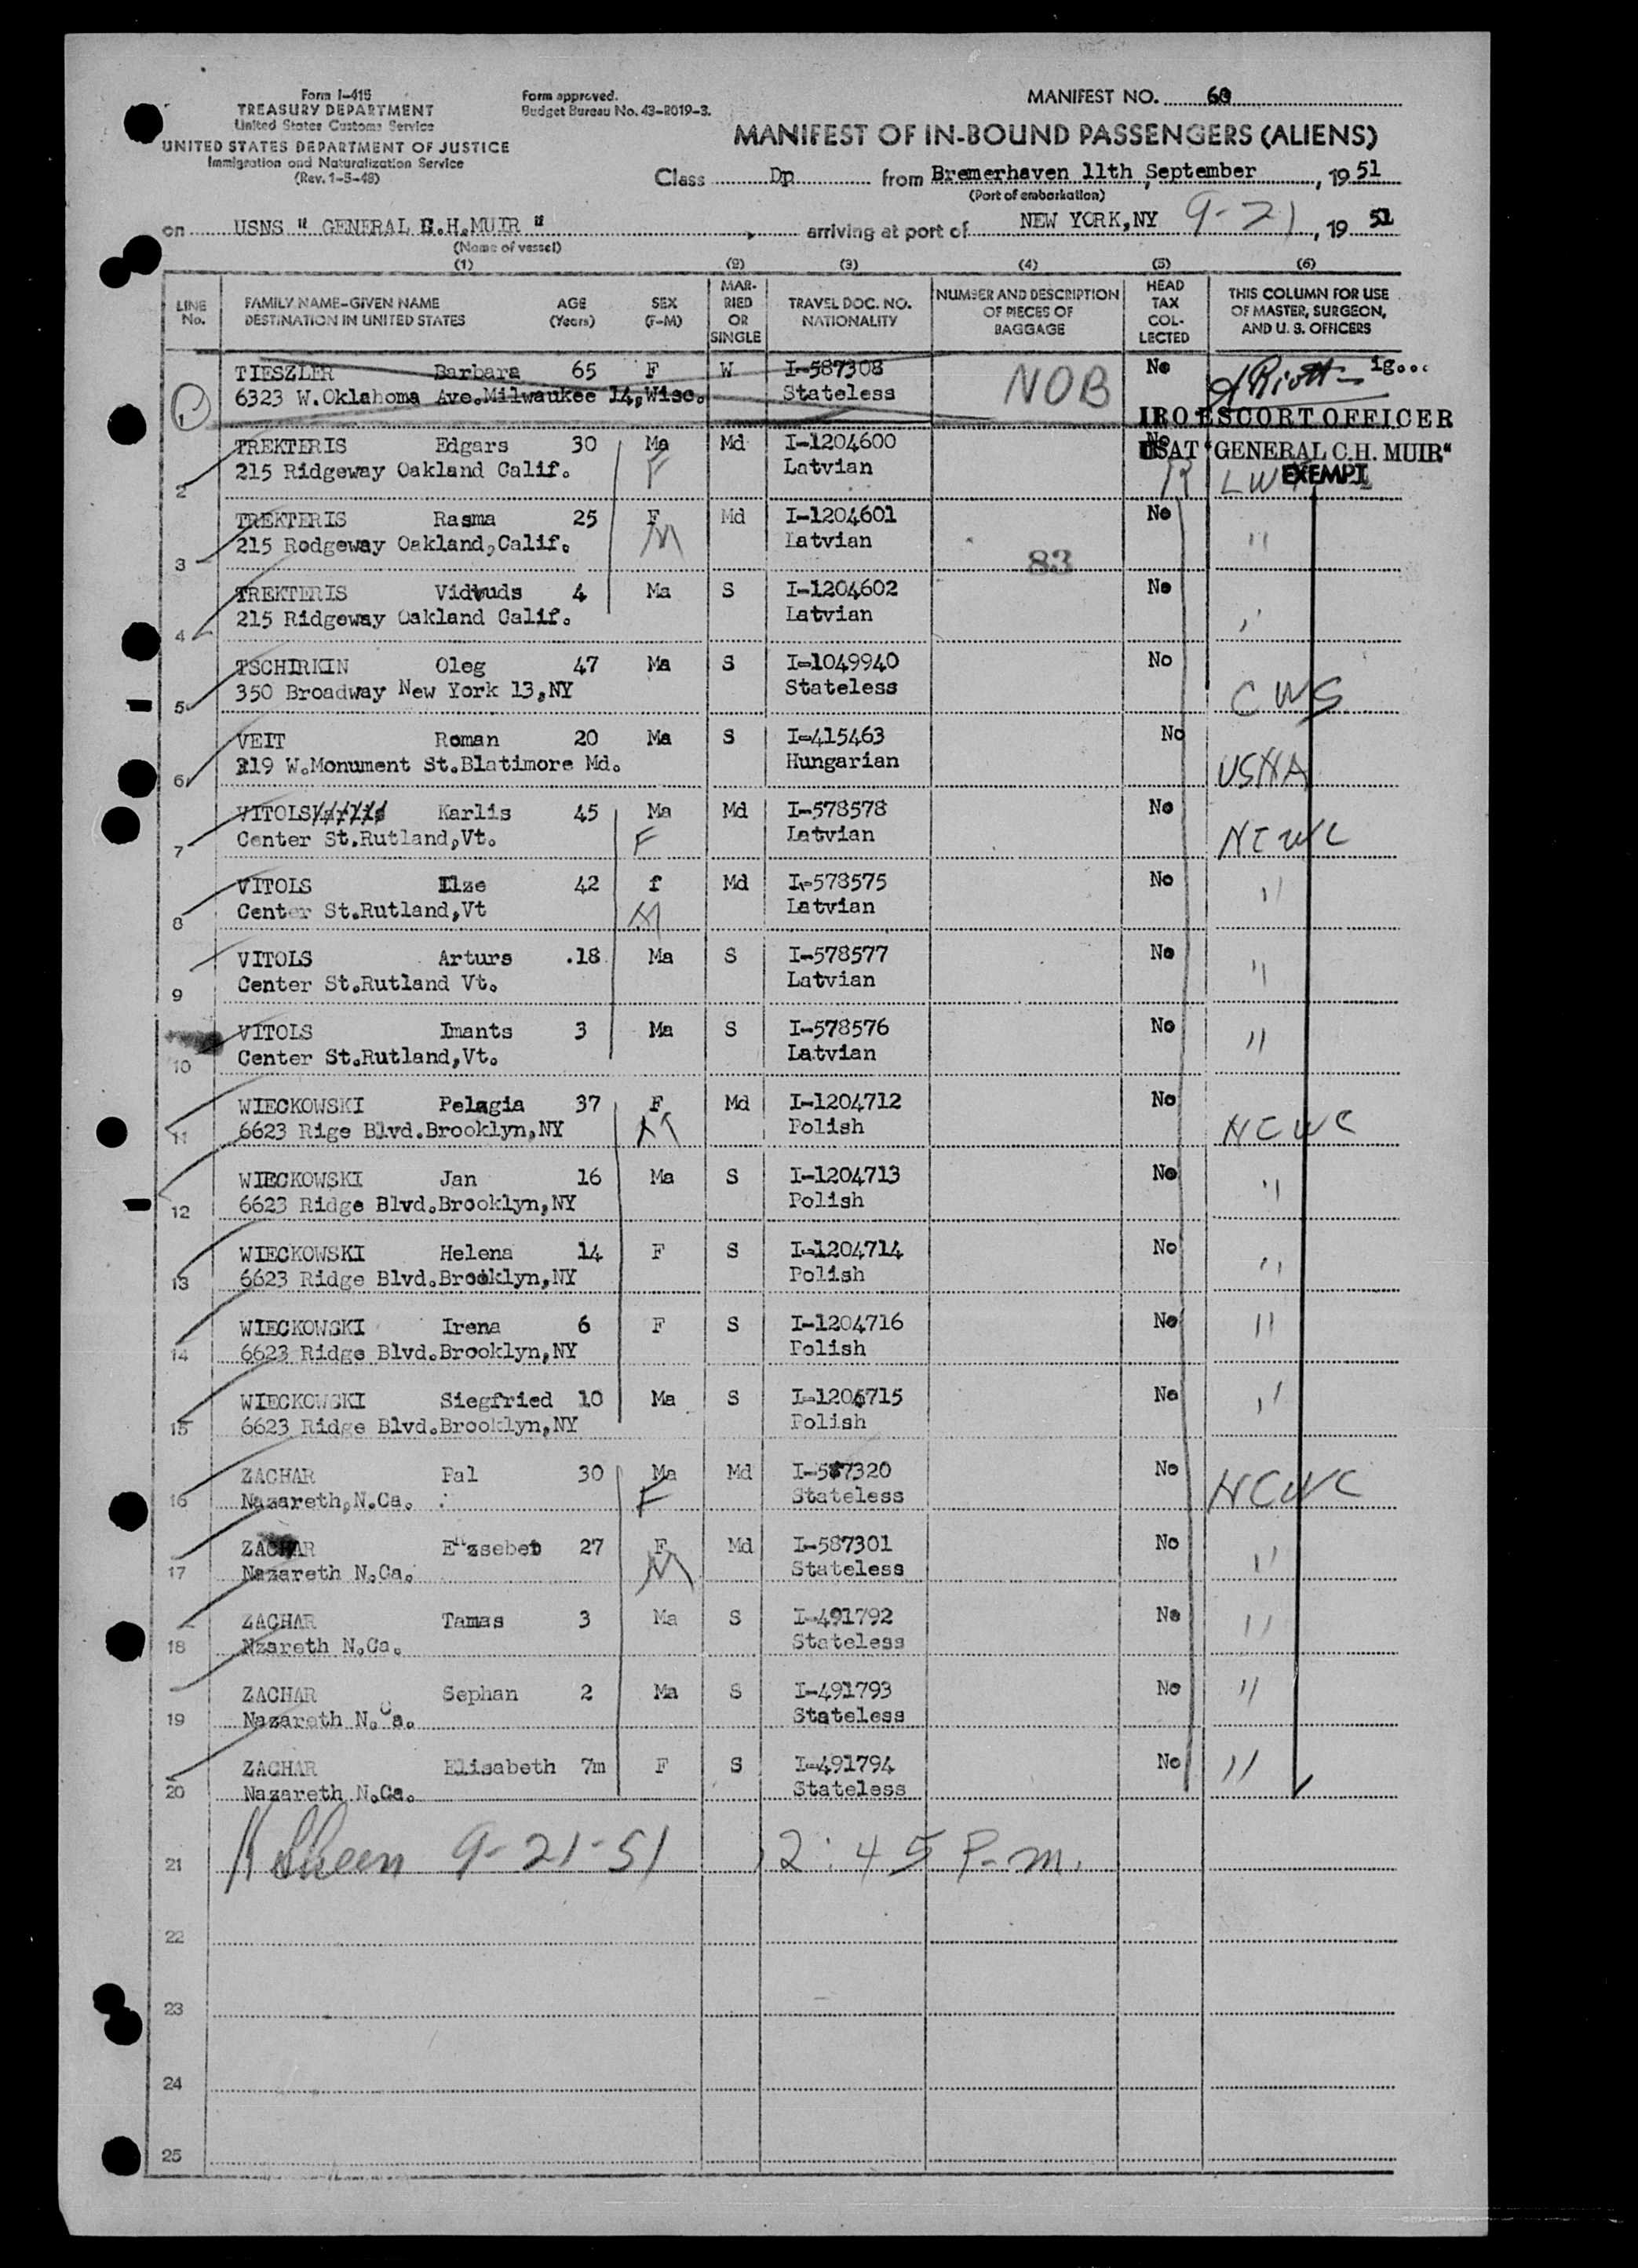 Form I-415
TREASURY DEPARTMENT
United States Customs Service
UNITED STATES DEPARTMENT OF JUSTICE
Immigration and Naturalization Service
(Rev. 1-5-48)
Form approved.
Budget Bureau No. 43-R019-3.
MANIFEST NO. 60
MANIFEST OF IN-BOUND PASSENGERS (ALIENS)
Class Dp from Bremerhaven 11th September, 1951
(Port of embarkation)
on USNS " GENERAL C.H.MUIR " arriving at port of NEW YORK,NY 9-21, 19 51
(Name of vessel)
(1) (2) (3) (4) (5) (6)
LINE No. FAMILY NAME-GIVEN NAME DESTINATION IN UNITED STATES AGE (Years) SEX (F-M) MARRIED OR SINGLE TRAVEL DOC. NO. NATIONALITY NUMBER AND DESCRIPTION OF PIECES OF BAGGAGE HEAD TAX COLLECTED THIS COLUMN FOR USE OF MASTER, SURGEON, AND U. S. OFFICERS
1 TIESZLER Barbara 65 F W I-587308 NOB No ig...
6323 W.Oklahoma Ave.Milwaukee 14,Wisc. Stateless
IRO ESCORT OFFICER
2 TREKTERIS Edgars 30 Ma Md I-1204600 No USAT "GENERAL C.H. MUIR"
215 Ridgeway Oakland Calif. F Latvian EXEMPT
3 TREKTERIS Rasma 25 F Md I-1204601 No "
215 Rodgeway Oakland,Calif. M Latvian 83
4 TREKTERIS Vidvuds 4 Ma S I-1204602 No "
215 Ridgeway Oakland Calif. Latvian
5 TSCHIRKIN Oleg 47 Ma S I-1049940 No
350 Broadway New York 13,NY Stateless CWS
6 VEIT Roman 20 Ma S I-415463 No
319 W.Monument St.Blatimore Md. Hungarian USNA
7 VITOLS Karlis 45 Ma Md I-578578 No
Center St.Rutland,Vt. F Latvian NCWC
8 VITOLS Ilze 42 f Md I-578575 No "
Center St.Rutland,Vt M Latvian
9 VITOLS Arturs .18 Ma S I-578577 No "
Center St.Rutland Vt. Latvian
10 VITOLS Imants 3 Ma S I-578576 No "
Center St.Rutland,Vt. Latvian
11 WIECKOWSKI Pelagia 37 F Md I-1204712 No
6623 Rige Blvd.Brooklyn,NY M Polish NCWC
12 WIECKOWSKI Jan 16 Ma S I-1204713 No "
6623 Ridge Blvd.Brooklyn,NY Polish
13 WIECKOWSKI Helena 14 F S I-1204714 No "
6623 Ridge Blvd.Brooklyn,NY Polish
14 WIECKOWSKI Irena 6 F S I-1204716 No "
6623 Ridge Blvd.Brooklyn,NY Polish
15 WIECKOWSKI Siegfried 10 Ma S I-1204715 No "
6623 Ridge Blvd.Brooklyn,NY Polish
16 ZACHAR Pal 30 Ma Md I-587320 No NCWC
Nazareth,N.Ca. F Stateless
17 ZACHAR E"zsebet 27 F Md I-587301 No "
Nazareth N.Ca. M Stateless
18 ZACHAR Tamas 3 Ma S I-491792 No "
Nzareth N.Ca. Stateless
19 ZACHAR Sephan 2 Ma S I-491793 No "
Nazareth N.Ca. Stateless
20 ZACHAR Elisabeth 7m F S I-491794 No "
Nazareth N.Ca. Stateless
21 9-21-51 2:45 P.m.
22
23
24
25